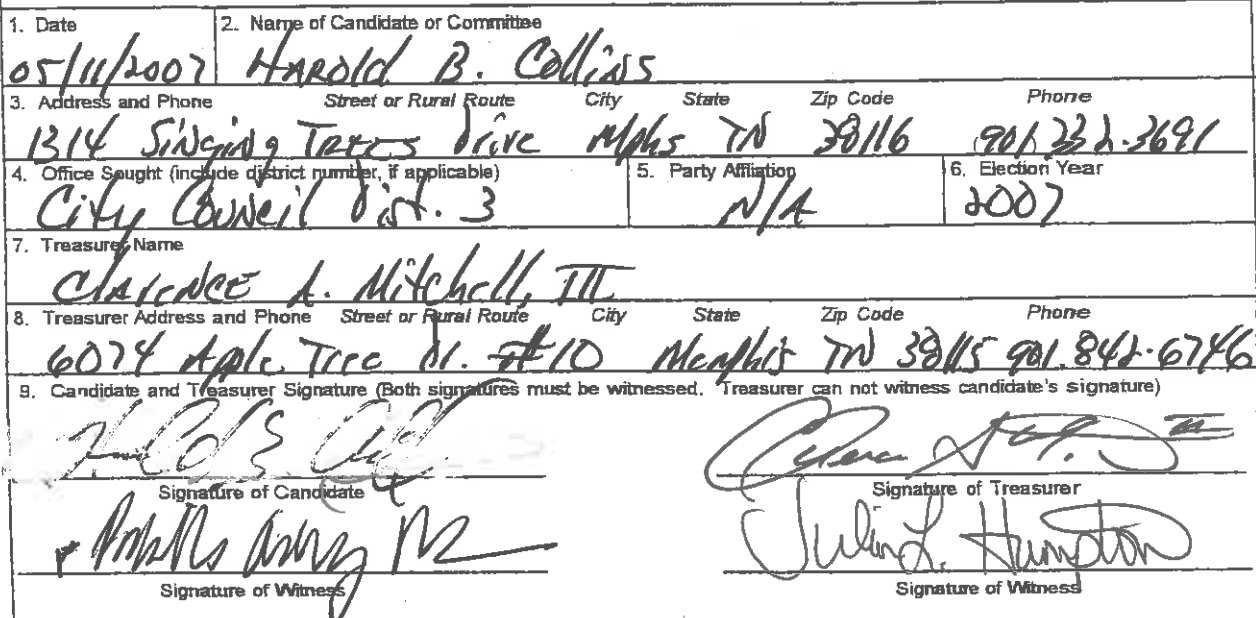 1. Date 2. Name of Candidate or Committee
05/11/2007 Harold B. Collins
3. Address and Phone Street or Rural Route City State Zip Code Phone
1314 Singing Trees Drive Mphs TN 38116 901.332.3691
4. Office Sought (include district number, if applicable) 5. Party Affiliation 6. Election Year
City Council Dist. 3 N/A 2007
7. Treasurer Name
Clarence A. Mitchell, III
8. Treasurer Address and Phone Street or Rural Route City State Zip Code Phone
6074 Apple Tree Dr. #10 Memphis TN 38115 901.842.6746
9. Candidate and Treasurer Signature (Both signatures must be witnessed. Treasurer can not witness candidate's signature)
Signature of Candidate Signature of Treasurer
Hampton
Signature of Witness Signature of Witness